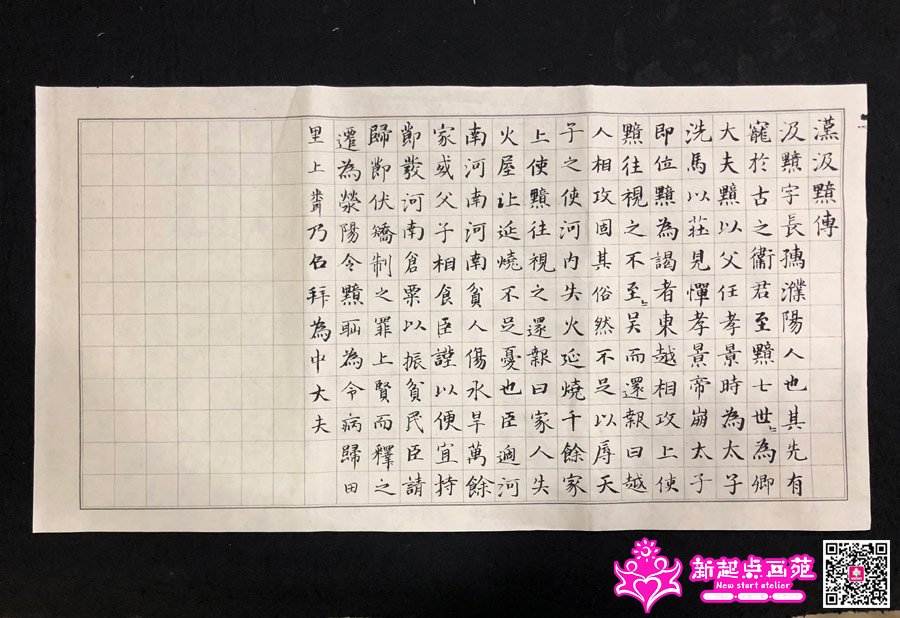 漢汲黯傳
汲黯字長孺濮陽人也其先有
寵於古之衞君至黯七世〻為卿
大夫黯以父任孝景時為太子
洗馬以莊見憚孝景帝崩太子
即位黯為謁者東越相攻上使
黯往視之不至〻吳而還報曰越
人相攻固其俗然不足以辱天
子之使河内失火延燒千餘家
上使黯往視之還報曰家人失
火屋比延燒不足憂也臣過河
南河南河南貧人傷水旱萬餘
家或父子相食臣謹以便宜持
節發河南倉粟以振貧民臣請
歸節伏矯制之罪上賢而釋之
遷為滎陽令黯耻為令病歸田
里上聞乃召拜為中大夫
新起点画苑
New start atelier